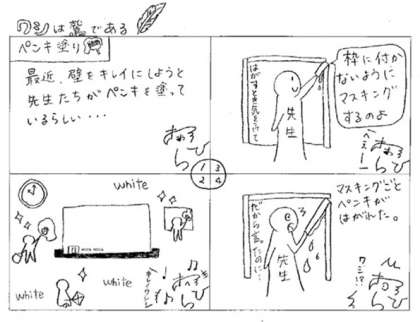 ワシは鷲である
ペンキ塗り
最近、壁をキレイにしようと
先生たちがペンキを塗って
いるらしい・・・
1
3
2
4
white
white
white
キレイキレイ
枠に付か
ないように
マスキング
するのよ
へぇー
先生
はがすとき気をつけて
マスキングごと
ペンキが
はがれた。
だから言ったのに…
先生